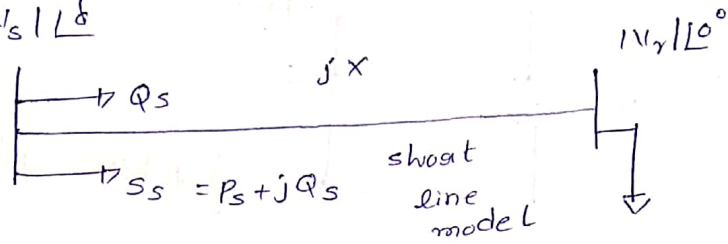 Vs|∠δ
|Vr|∠0°
jX
Qs
Ss = Ps+jQs
short
line
model